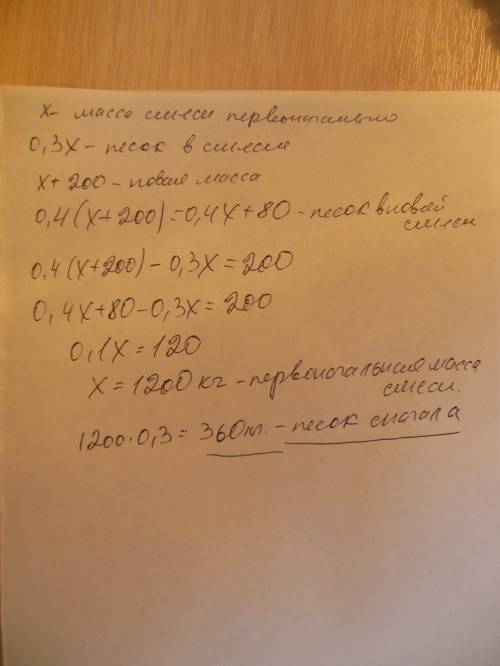 x - масса смеси первоначально
0,3x - песок в смеси
x + 200 - новая масса
0,4(x+200) = 0,4x+80 - песок в новой
смеси
0,4(x+200) - 0,3x = 200
0,4x+80-0,3x = 200
0,1x = 120
x = 1200 кг - первоначальная масса
смеси.
1200·0,3 = 360кг. - песок сначала